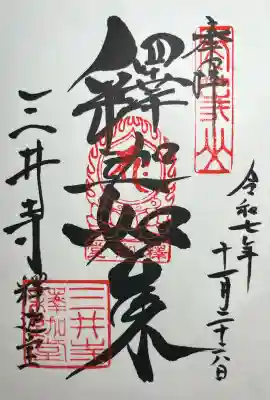 奉拝
令和七年
十一月二十八日
釋迦如来
三井寺
釋迦堂
三井寺
釋迦堂